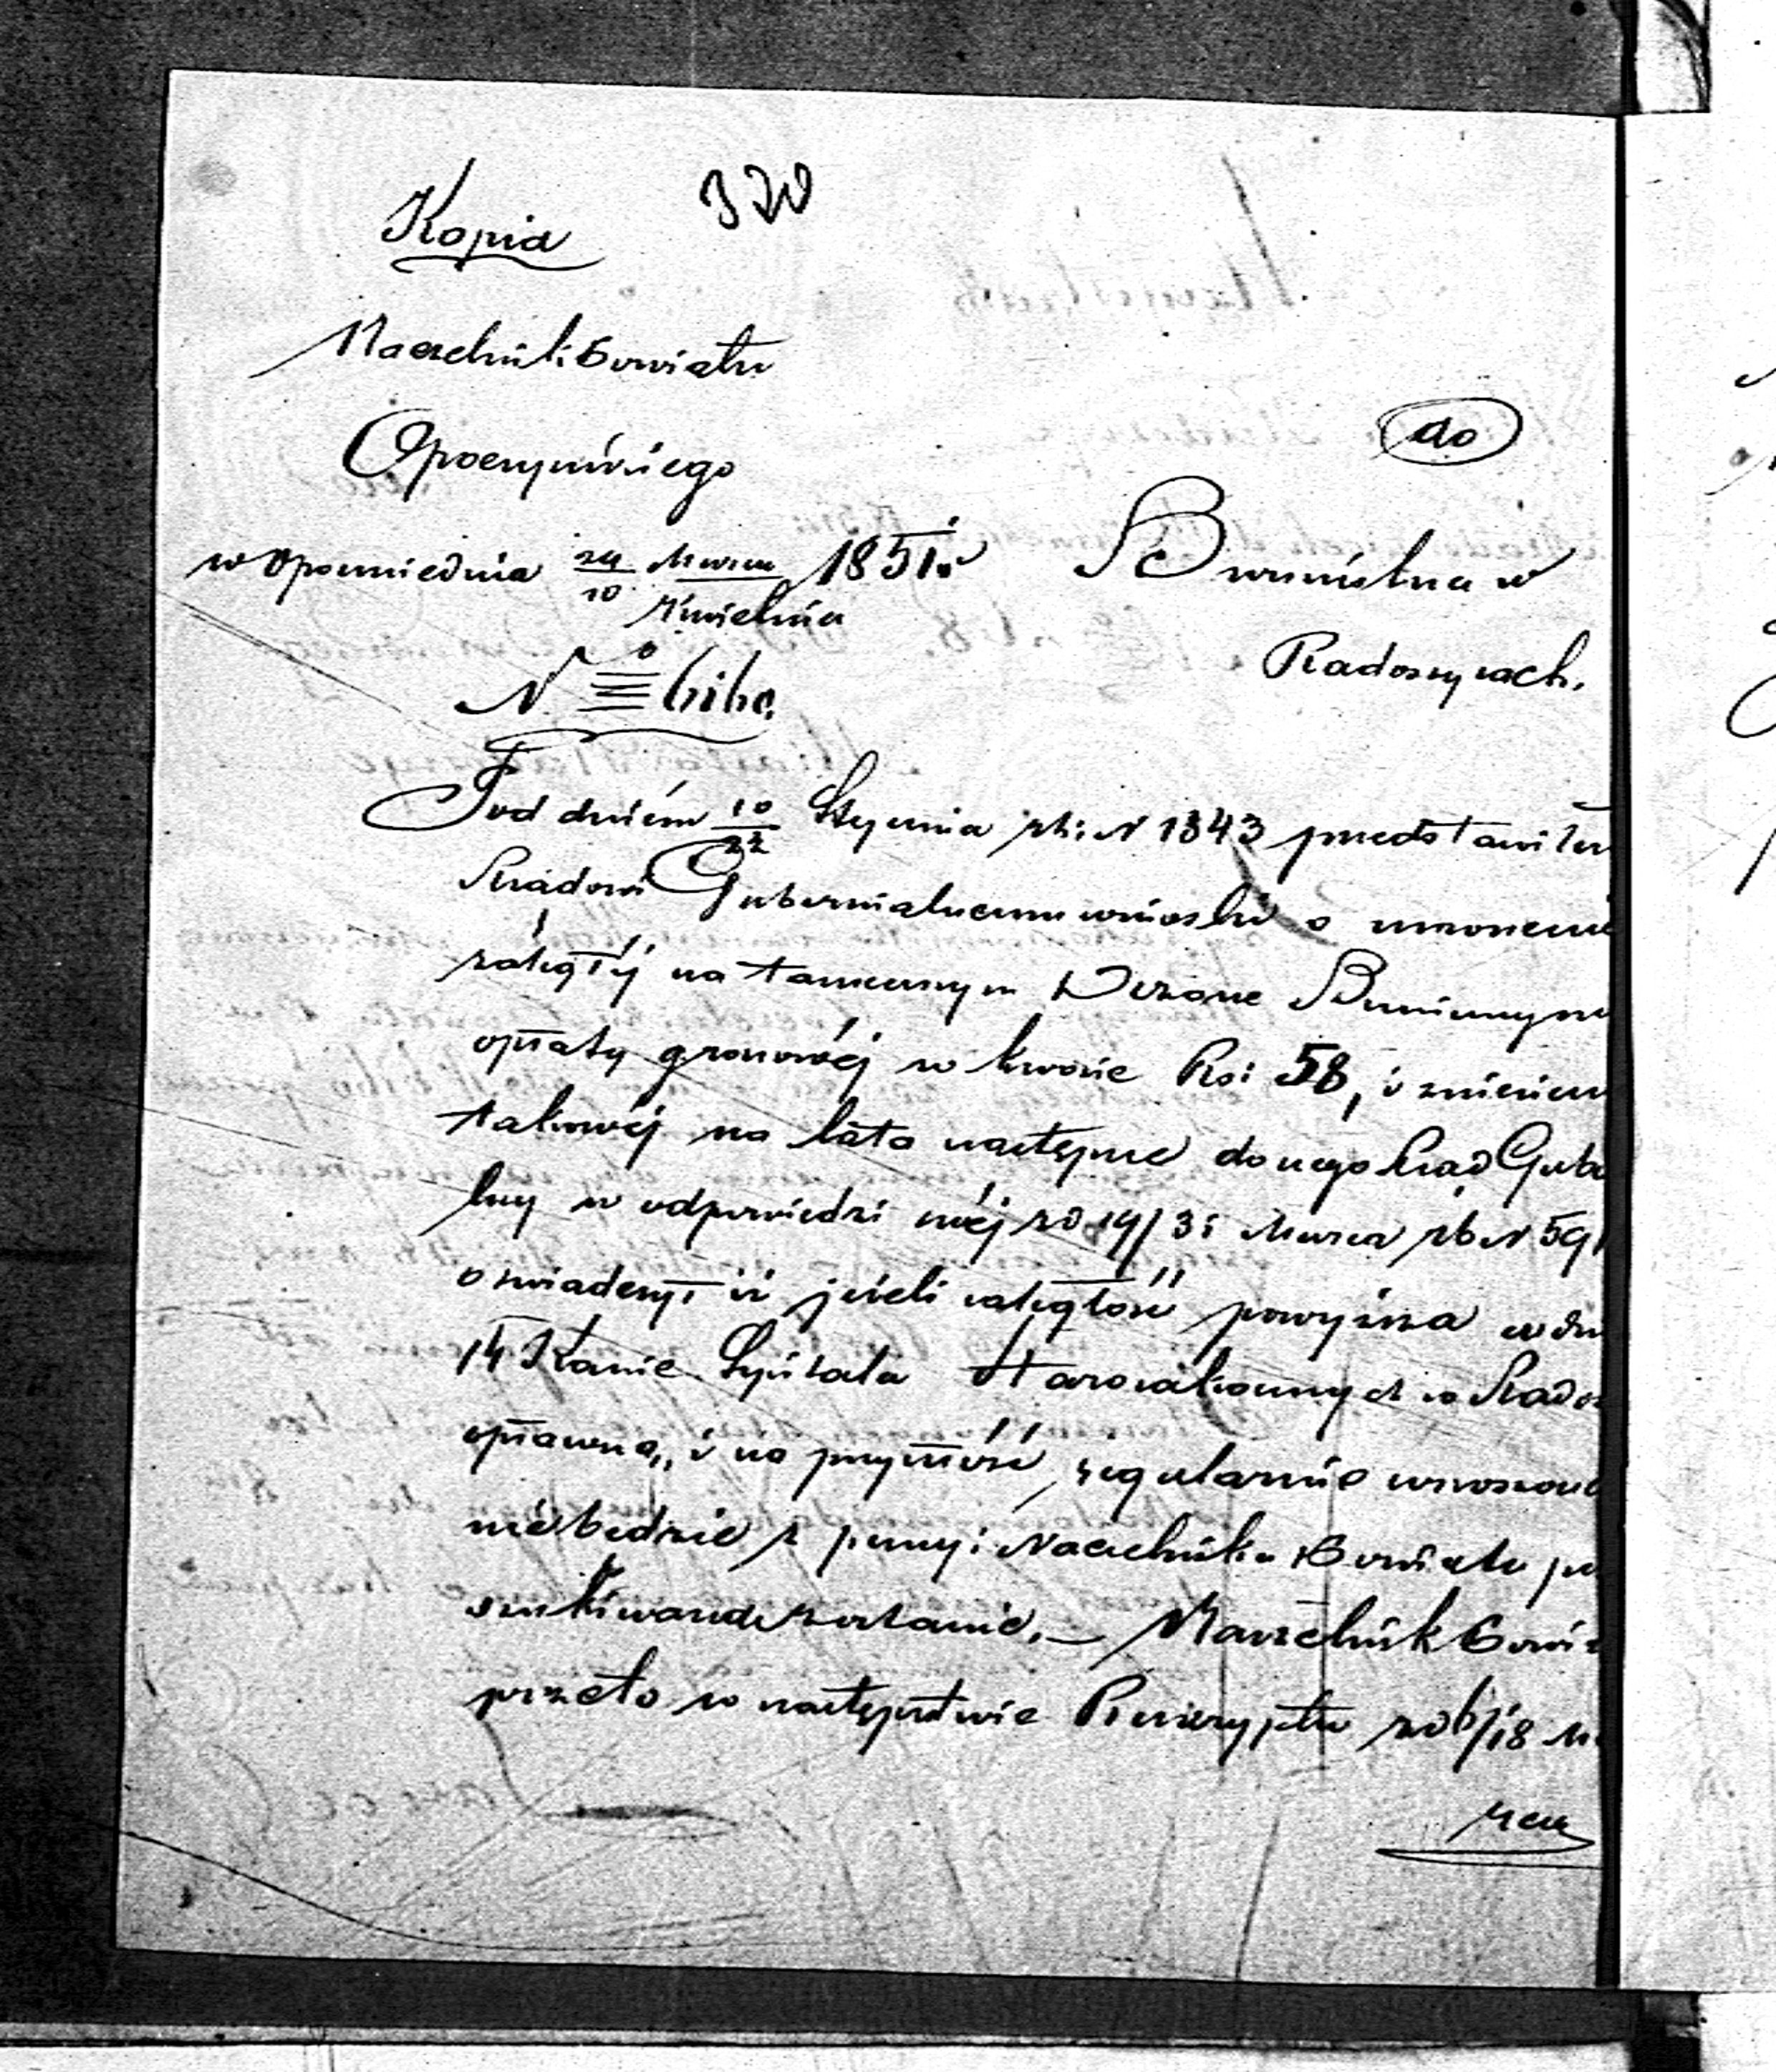 320
Kopia
Naczelnik Powiatu
Opoczyńskiego
do
w Opocznie dnia 29/10 Marca/Kwietnia 1851 r
Burmistrza w
Radoszycach.
N
Pod dniem 10/22 Stycznia rb: N 1343 przedstawiłem
Rządowi Gubernialnemu wnioski o umorzenie
zaległéj na tamecznym Dozorze Bóżniczym
opłaty groszowéj w kwocie Rs: 58, i zniesieniu
takowéj na lata następne do czego Rząd Guber
lny w odpowiedzi swéj z d 19/31 Marca rb N 591
oświadczył iż jeżeli zaległość powyższa
14 Kassie Szpitala Starozakonnych w Rado
opłaconą, i na przyszłość regularnie wnoszoną
niebędzie z pensyi Naczelnika Powiatu po
szukiwana zostanie. — Naczelnik Powia
przeto w następstwie Reskryptu z d 6/18 M